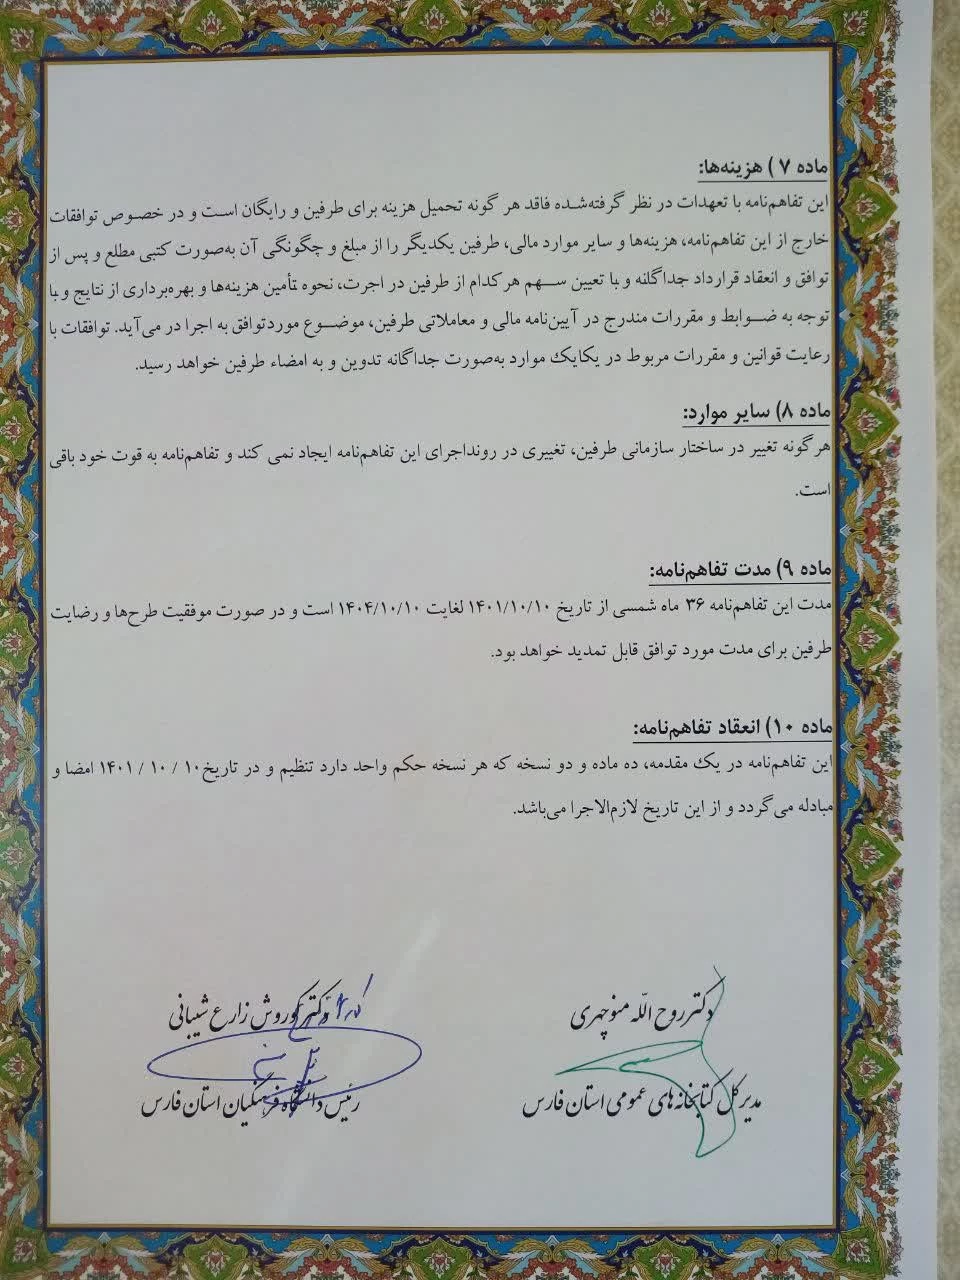 ماده ۷ ) هزینه‌ها:
این تفاهم‌نامه با تعهدات در نظر گرفته‌شده فاقد هر گونه تحمیل هزینه برای طرفین و رایگان است و در خصوص توافقات
خارج از این تفاهم‌نامه، هزینه‌ها و سایر موارد مالی، طرفین یکدیگر را از مبلغ و چگونگی آن به‌صورت کتبی مطلع و پس از
توافق و انعقاد قرارداد جداگانه و با تعیین سهم هرکدام از طرفین در اجرت، نحوه تأمین هزینه‌ها و بهره‌برداری از نتایج و با
توجه به ضوابط و مقررات مندرج در آیین‌نامه مالی و معاملاتی طرفین، موضوع موردتوافق به اجرا در می‌آید. توافقات با
رعایت قوانین و مقررات مربوط در یکایک موارد به‌صورت جداگانه تدوین و به امضاء طرفین خواهد رسید.
ماده ۸) سایر موارد:
هرگونه تغییر در ساختار سازمانی طرفین، تغییری در رونداجرای این تفاهم‌نامه ایجاد نمی کند و تفاهم‌نامه به قوت خود باقی
است.
ماده ۹) مدت تفاهم‌نامه:
مدت این تفاهم‌نامه ۳۶ ماه شمسی از تاریخ ۱۴۰۱/۱۰/۱۰ لغایت ۱۴۰۴/۱۰/۱۰ است و در صورت موفقیت طرح‌ها و رضایت
طرفین برای مدت مورد توافق قابل تمدید خواهد بود.
ماده ۱۰) انعقاد تفاهم‌نامه:
این تفاهم‌نامه در یک مقدمه، ده ماده و دو نسخه که هر نسخه حکم واحد دارد تنظیم و در تاریخ۱۰ / ۱۰ / ۱۴۰۱ امضا و
مبادله می‌گردد و از این تاریخ لازم‌الاجرا می‌باشد.
دکتر روح الله منوچهری
مدیر کل کتابخانه‌های عمومی استان فارس
دکتر کوروش زارع شیبانی
رئیس دانشگاه فرهنگیان استان فارس